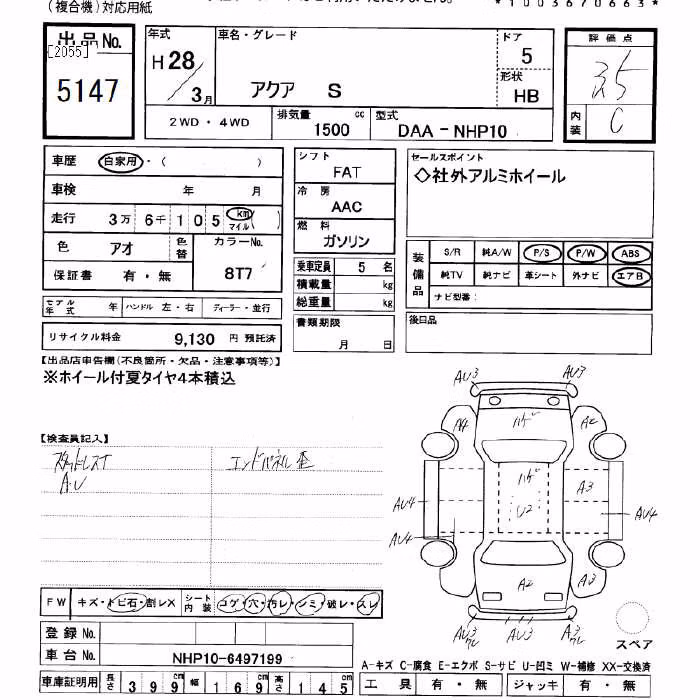 (複合機)対応用紙
*1003670663*
出品No.
[2055]
5147
年式
H28
3月
車名・グレード
アクア S
ドア
5
形状
HB
評価点
3.5
内装
C
2WD・4WD
排気量
1500 cc
型式
DAA-NHP10
車歴 自家用・( )
車検 年 月
走行 3万 6千 1 0 5 km マイル ( )
色 アオ
色替
カラーNo.
8T7
保証書 有・無
モデル年式 年 ハンドル 左・右 ディーラー・並行
リサイクル料金 9,130 円 預託済
シフト
FAT
冷房
AAC
燃料
ガソリン
乗車定員 5 名
積載量 kg
総重量 kg
書類期限
月 日
セールスポイント
◇社外アルミホイール
装備品
S/R 純A/W P/S P/W ABS
純TV 純ナビ 革シート 外ナビ エアB
ナビ型番:
後日品
【出品店申告欄(不良箇所・欠品・注意事項等)】
※ホイール付夏タイヤ4本積込
【検査員記入】
スタッドレス T
A.U
エンドパネル歪
AU3 AU3
A4 ハゲ A2
ハゲ A3
U2
AU4 AU4
AU4
A2 A3
AU3 ワレ AU3 A3 ワレ
スペア
FW キズ・トビ石・割レX シート内装 コゲ・穴・汚レ・シミ・破レ・スレ
登録No.
車台No. NHP10-6497199
車庫証明用 長さ 399cm 幅 169cm 高さ 145cm
A-キズ C-腐食 E-エクボ S-サビ U-凹ミ W-補修 XX-交換済
工具 有・無 ジャッキ 有・無